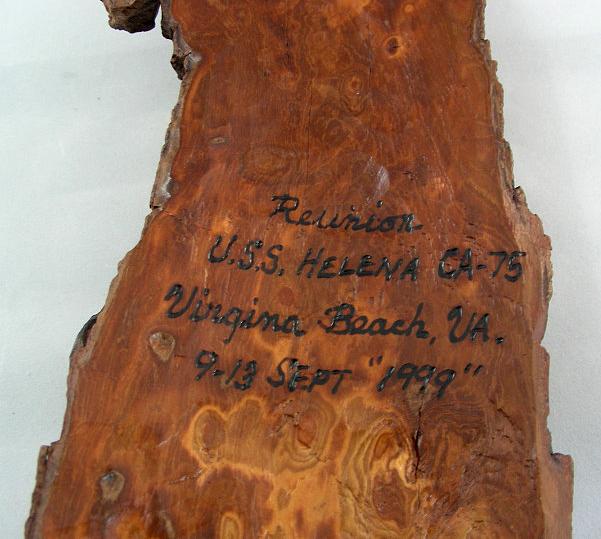 Reunion
U.S.S. HELENA CA-75
Virgina Beach, VA.
9-13 SEPT "1999"